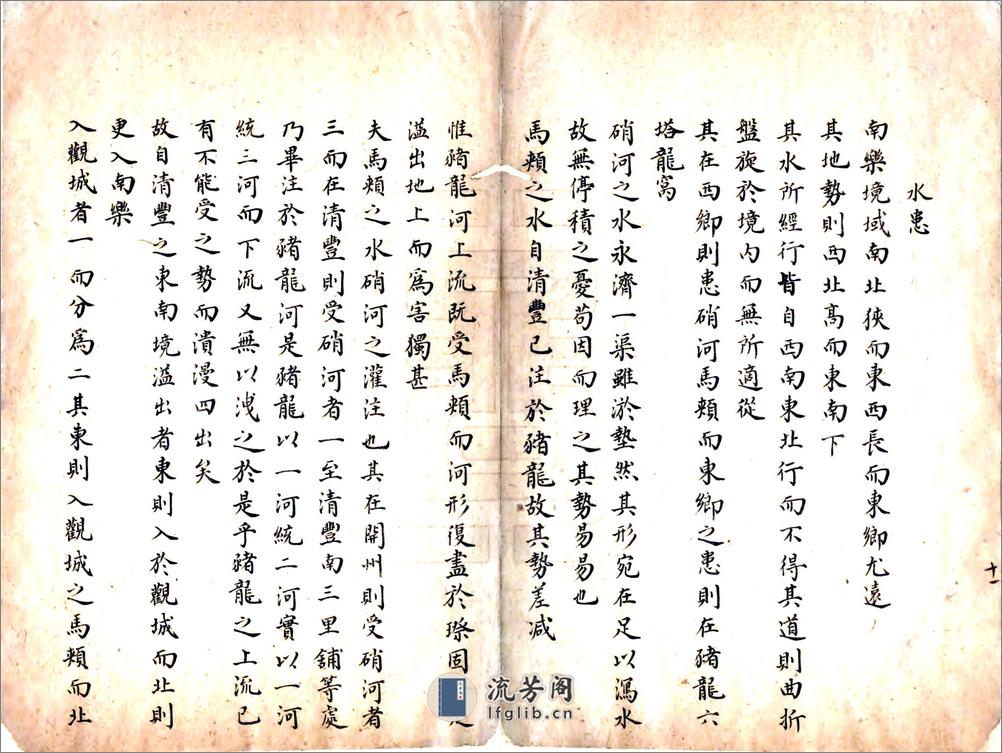 水患
南樂境域南北狹而東西長而東鄉尤遠
其地勢則西北高而東南下
其水所經行皆自西南東北行而不得其道則曲折
盤旋於境內而無所適從
其在西鄉則患硝河馬頰而東鄉之患則在豬龍六
塔龍窩
硝河之水永濟一渠雖淤墊然其形宛在足以瀉水
故無停積之憂苟因而理之其勢易易也
馬頰之水自清豐已注於豬龍故其勢差減
惟豬龍河上流既受馬頰而河形復盡於㙇固
溢出地上而為害獨甚
夫馬頰之水硝河之灌注也其在開州則受硝河者
三而在清豐則受硝河者一至清豐南三里舖等處
乃畢注於豬龍河是豬龍以一河統二河實以一河
統三河而下流又無以洩之於是乎豬龍之上流已
有不能受之勢而潰漫四出矣
故自清豐之東南境溢出者東則入於觀城而北則
更入南樂
入觀城者一而分為二其東則入觀城之馬頰而北
十一
流芳阁
lfglib.cn